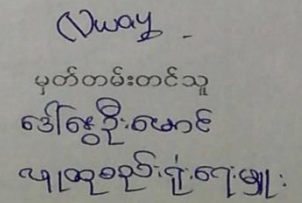 Nway
မှတ်တမ်းတင်သူ
ဒေါ်နွေဦးမောင်
လူထုစည်းရုံးရေးမှူး